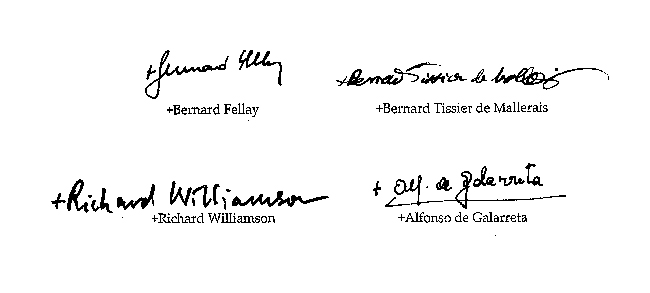 +Bernard Fellay +Bernard Tissier de Mallerais
+Bernard Fellay
+Bernard Tissier de Mallerais
+Richard Williamson + Alf. de Galarreta
+Richard Williamson
+Alfonso de Galarreta